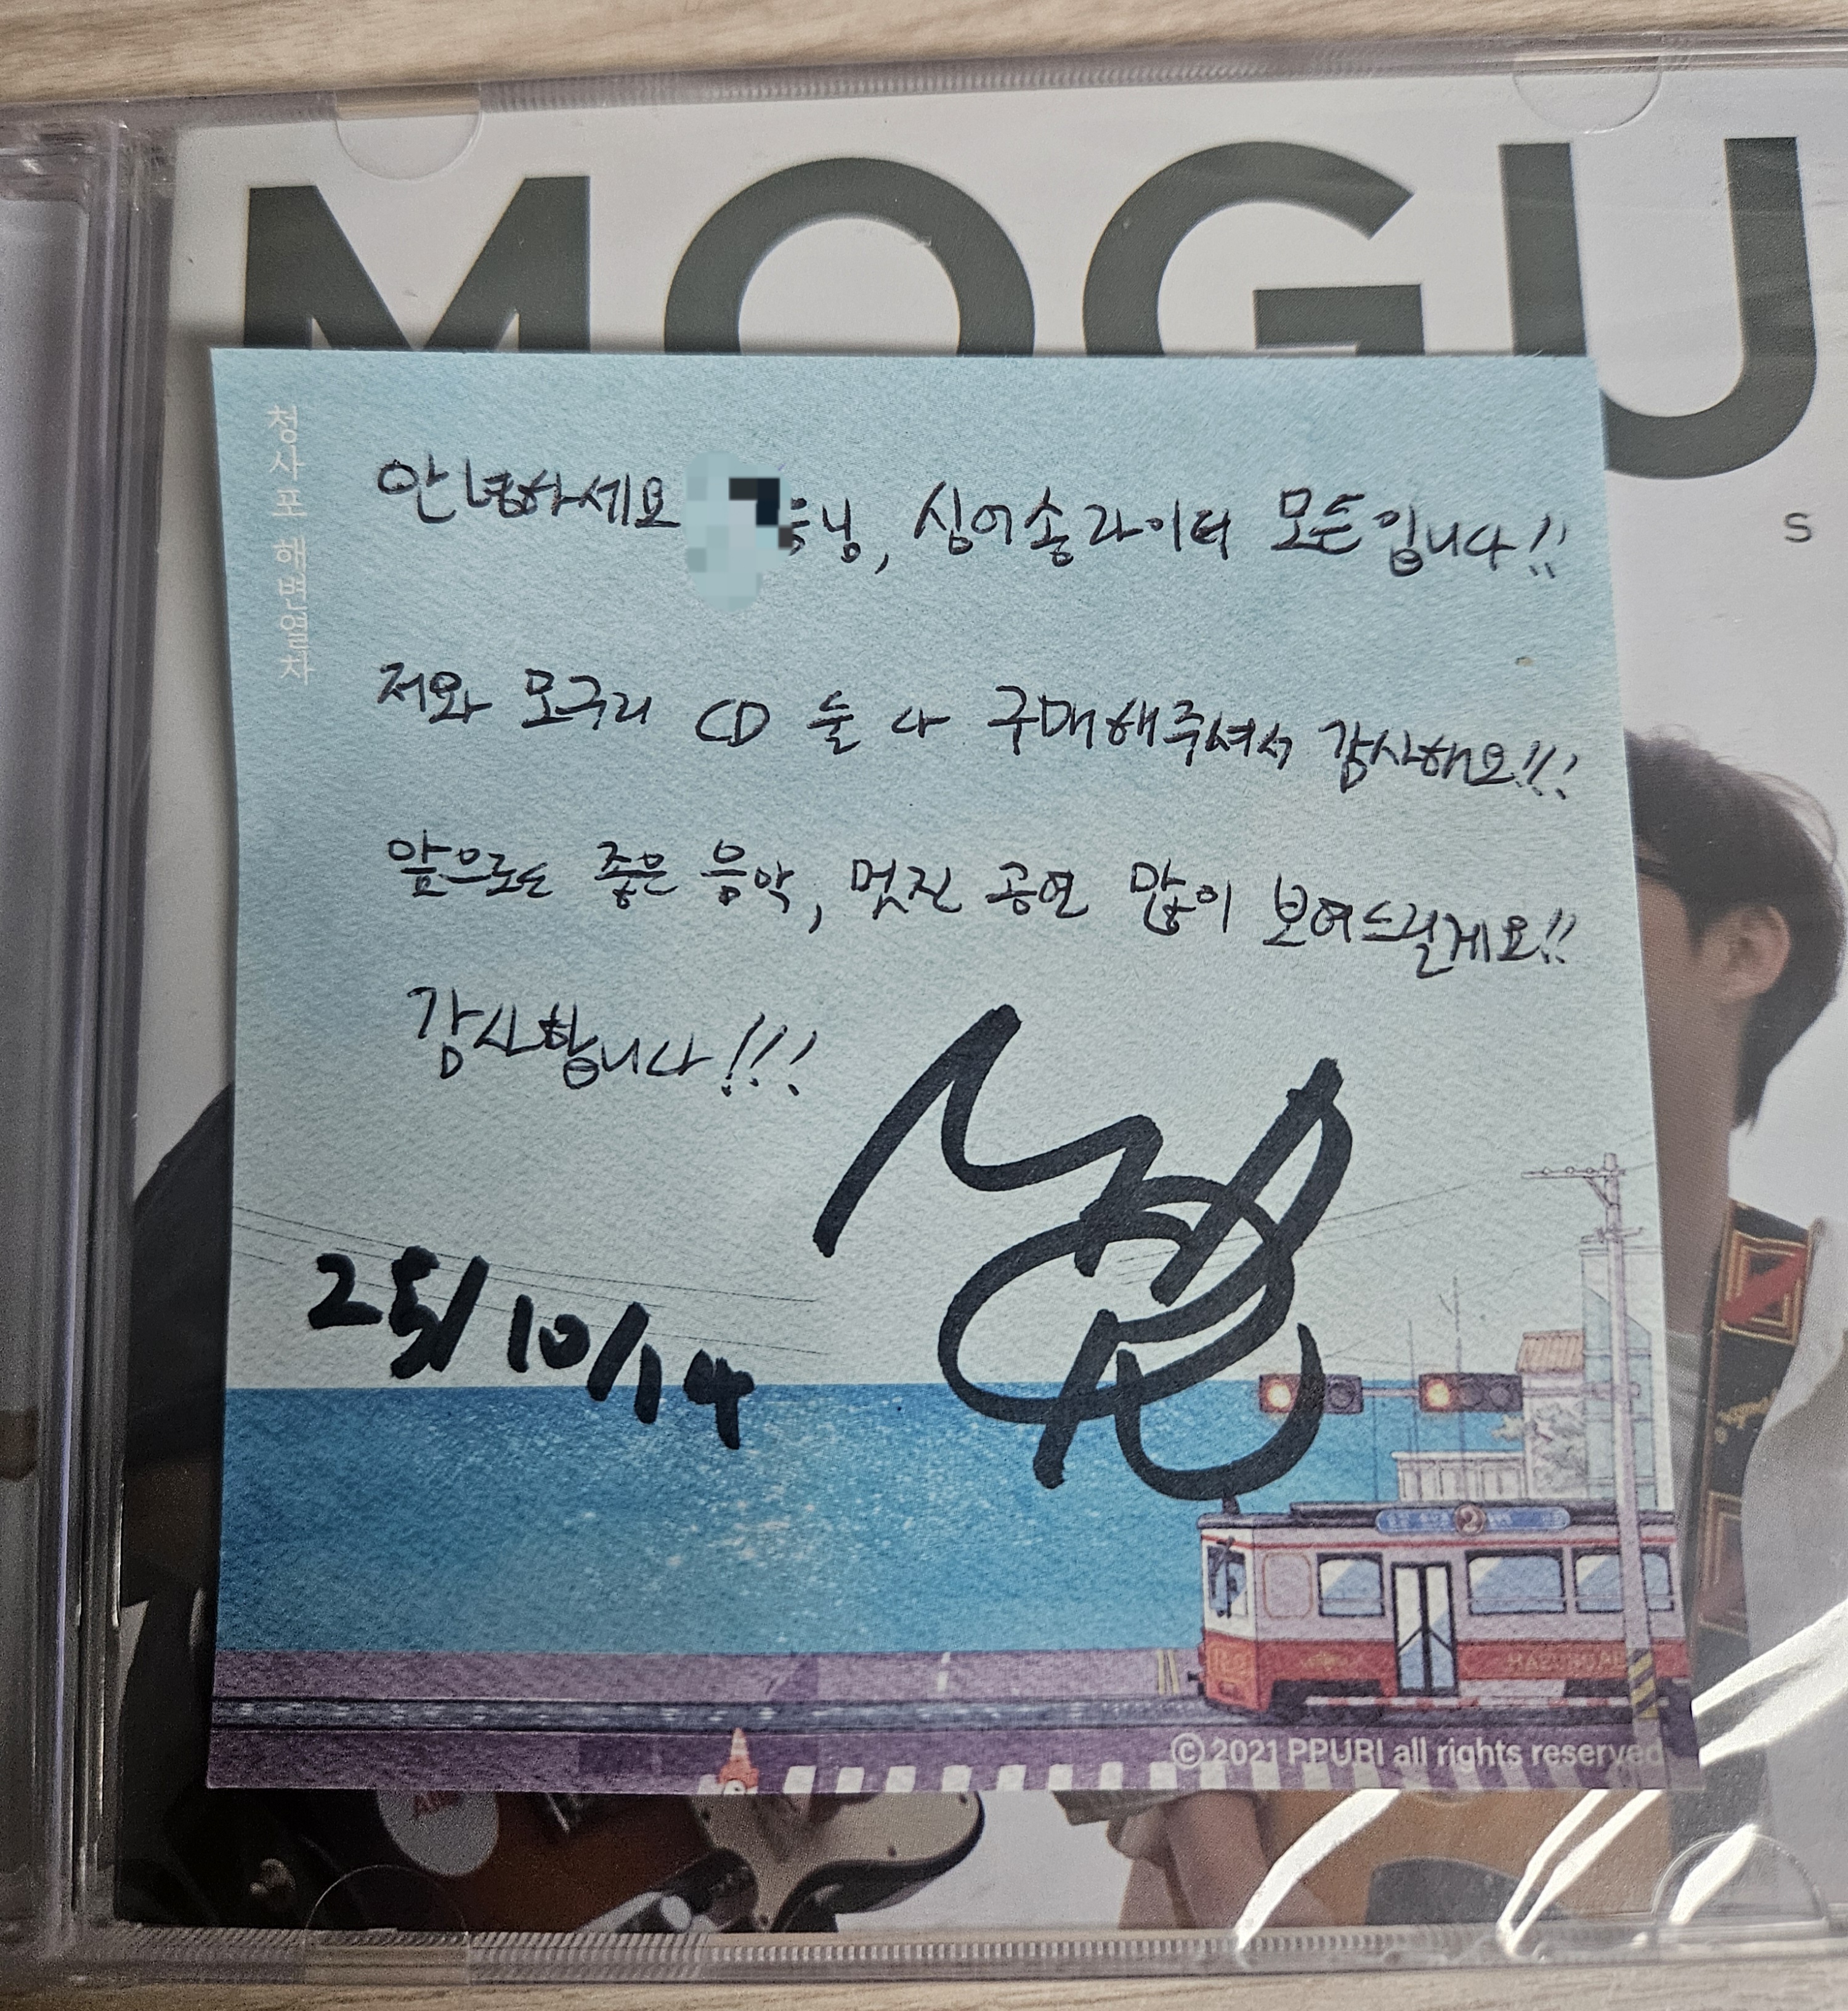 MOGU
S
청사포 해변열차
안녕하세요 님, 싱어송라이터 모든입니다!!
저와 모구리 CD 둘 다 구매해주셔서 감사해요!!!
앞으로도 좋은 음악, 멋진 공연 많이 보여드릴게요!!
감사합니다!!!
25/10/14
2
© 2021 PPURI all rights reserved